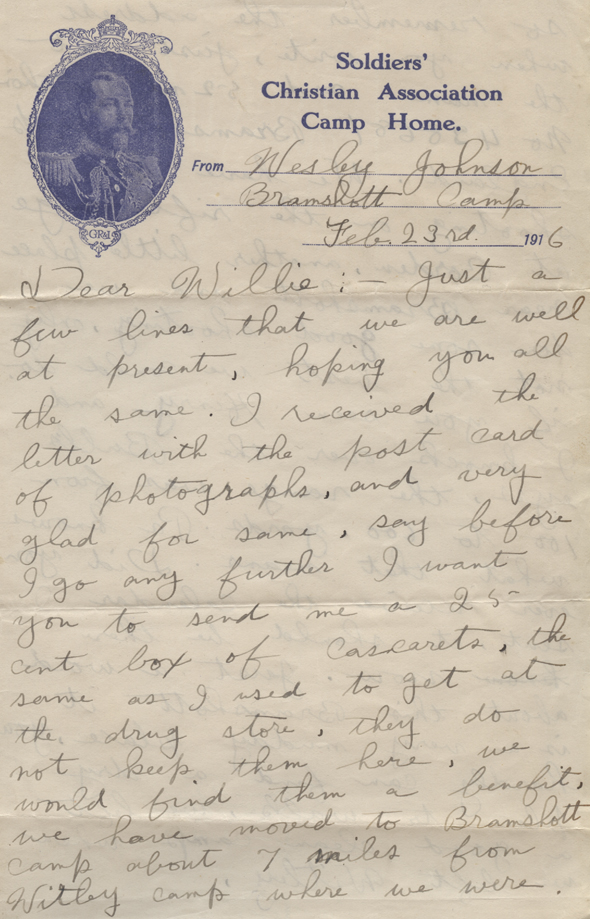 Soldiers'
Christian Association
Camp Home.
GR&I
From Wesley Johnson
Bramshott Camp
Feb. 23rd. 1916
Dear Willie : - Just a
few lines that we are well
at present, hoping you all
the same. I received the
letter with the post card
of photographs, and very
glad for same, say before
I go any further I want
you to send me a 25
cent box of cascarets, the
same as I used to get at
the drug store, they do
not keep them here, we
would find them a benefit,
we have moved to Bramshott
camp about 7 miles from
Witley camp where we were.